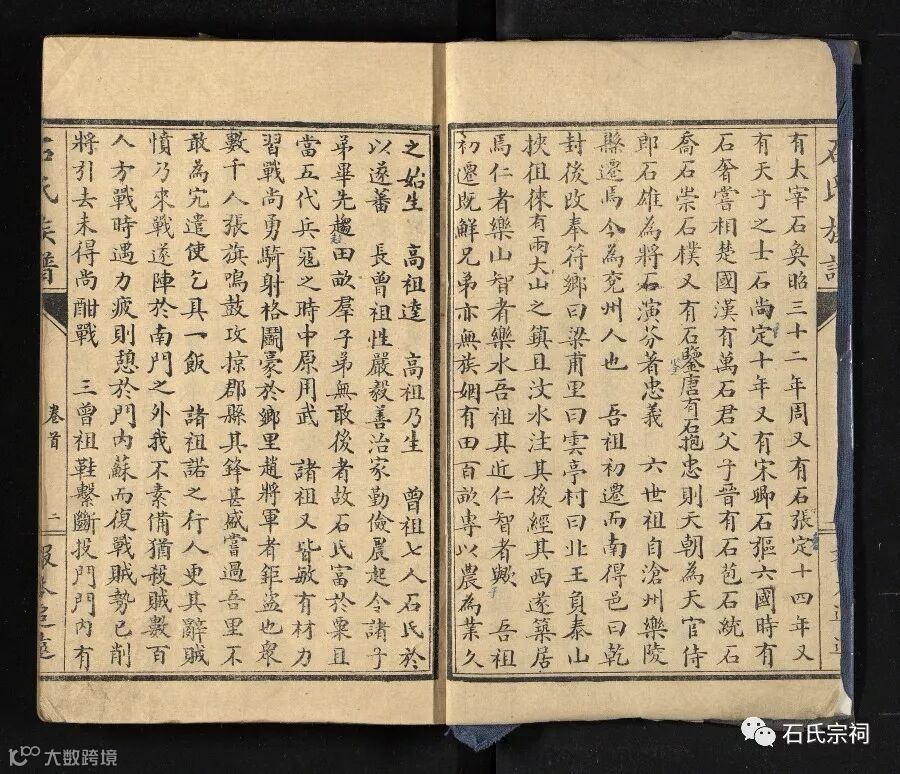 石氏族譜
有太宰石㚖昭三十二年周又有石張定十四年又
有天子之士石尚定十年又有宋卿石彄六國時有
石奢嘗相楚國漢有萬石君父子晉有石苞石統石
喬石崇石樸又有石鑒唐有石抱忠則天朝為天官侍
郎石雄為將石演芬著忠義　六世祖自滄州樂陵
縣遷焉今為兗州人也　吾祖初遷而南得邑曰乾
封後改奉符鄉曰梁甫里曰雲亭村曰北王負泰山
挾徂徠有兩大山之鎮且汶水注其後經其西遂築居
焉仁者樂山智者樂水吾祖其近仁智者歟　吾祖
初遷既鮮兄弟亦無族姻有田百畝專以農為業久
之始生　高祖逵　高祖乃生　曾祖七人石氏於
以遂蕃　長曾祖性嚴毅善治家勤儉農起令諸子
弟畢先趨田畝羣子弟無敢後者故石氏富於粟且
當五代兵寇之時中原用武　諸祖又皆敏有材力
習戰尚勇騎射格鬭豪於鄉里趙將軍者鉅盜也衆
數千人張旗鳴鼓攻掠郡縣其鋒甚盛嘗過吾里不
敢為宄遣使乞具一飯　諸祖諾之行人更其辭賊
憤乃來戰遂陣於南門之外我不素備猶殺賊數百
人方戰時遇力疲則憩於門內蘇而復戰賊勢已削
將引去未得尚酣戰　三曾祖鞋繫斷投門門內有
石氏族譜
卷首
二
報本追遠
石氏宗祠
大数跨境